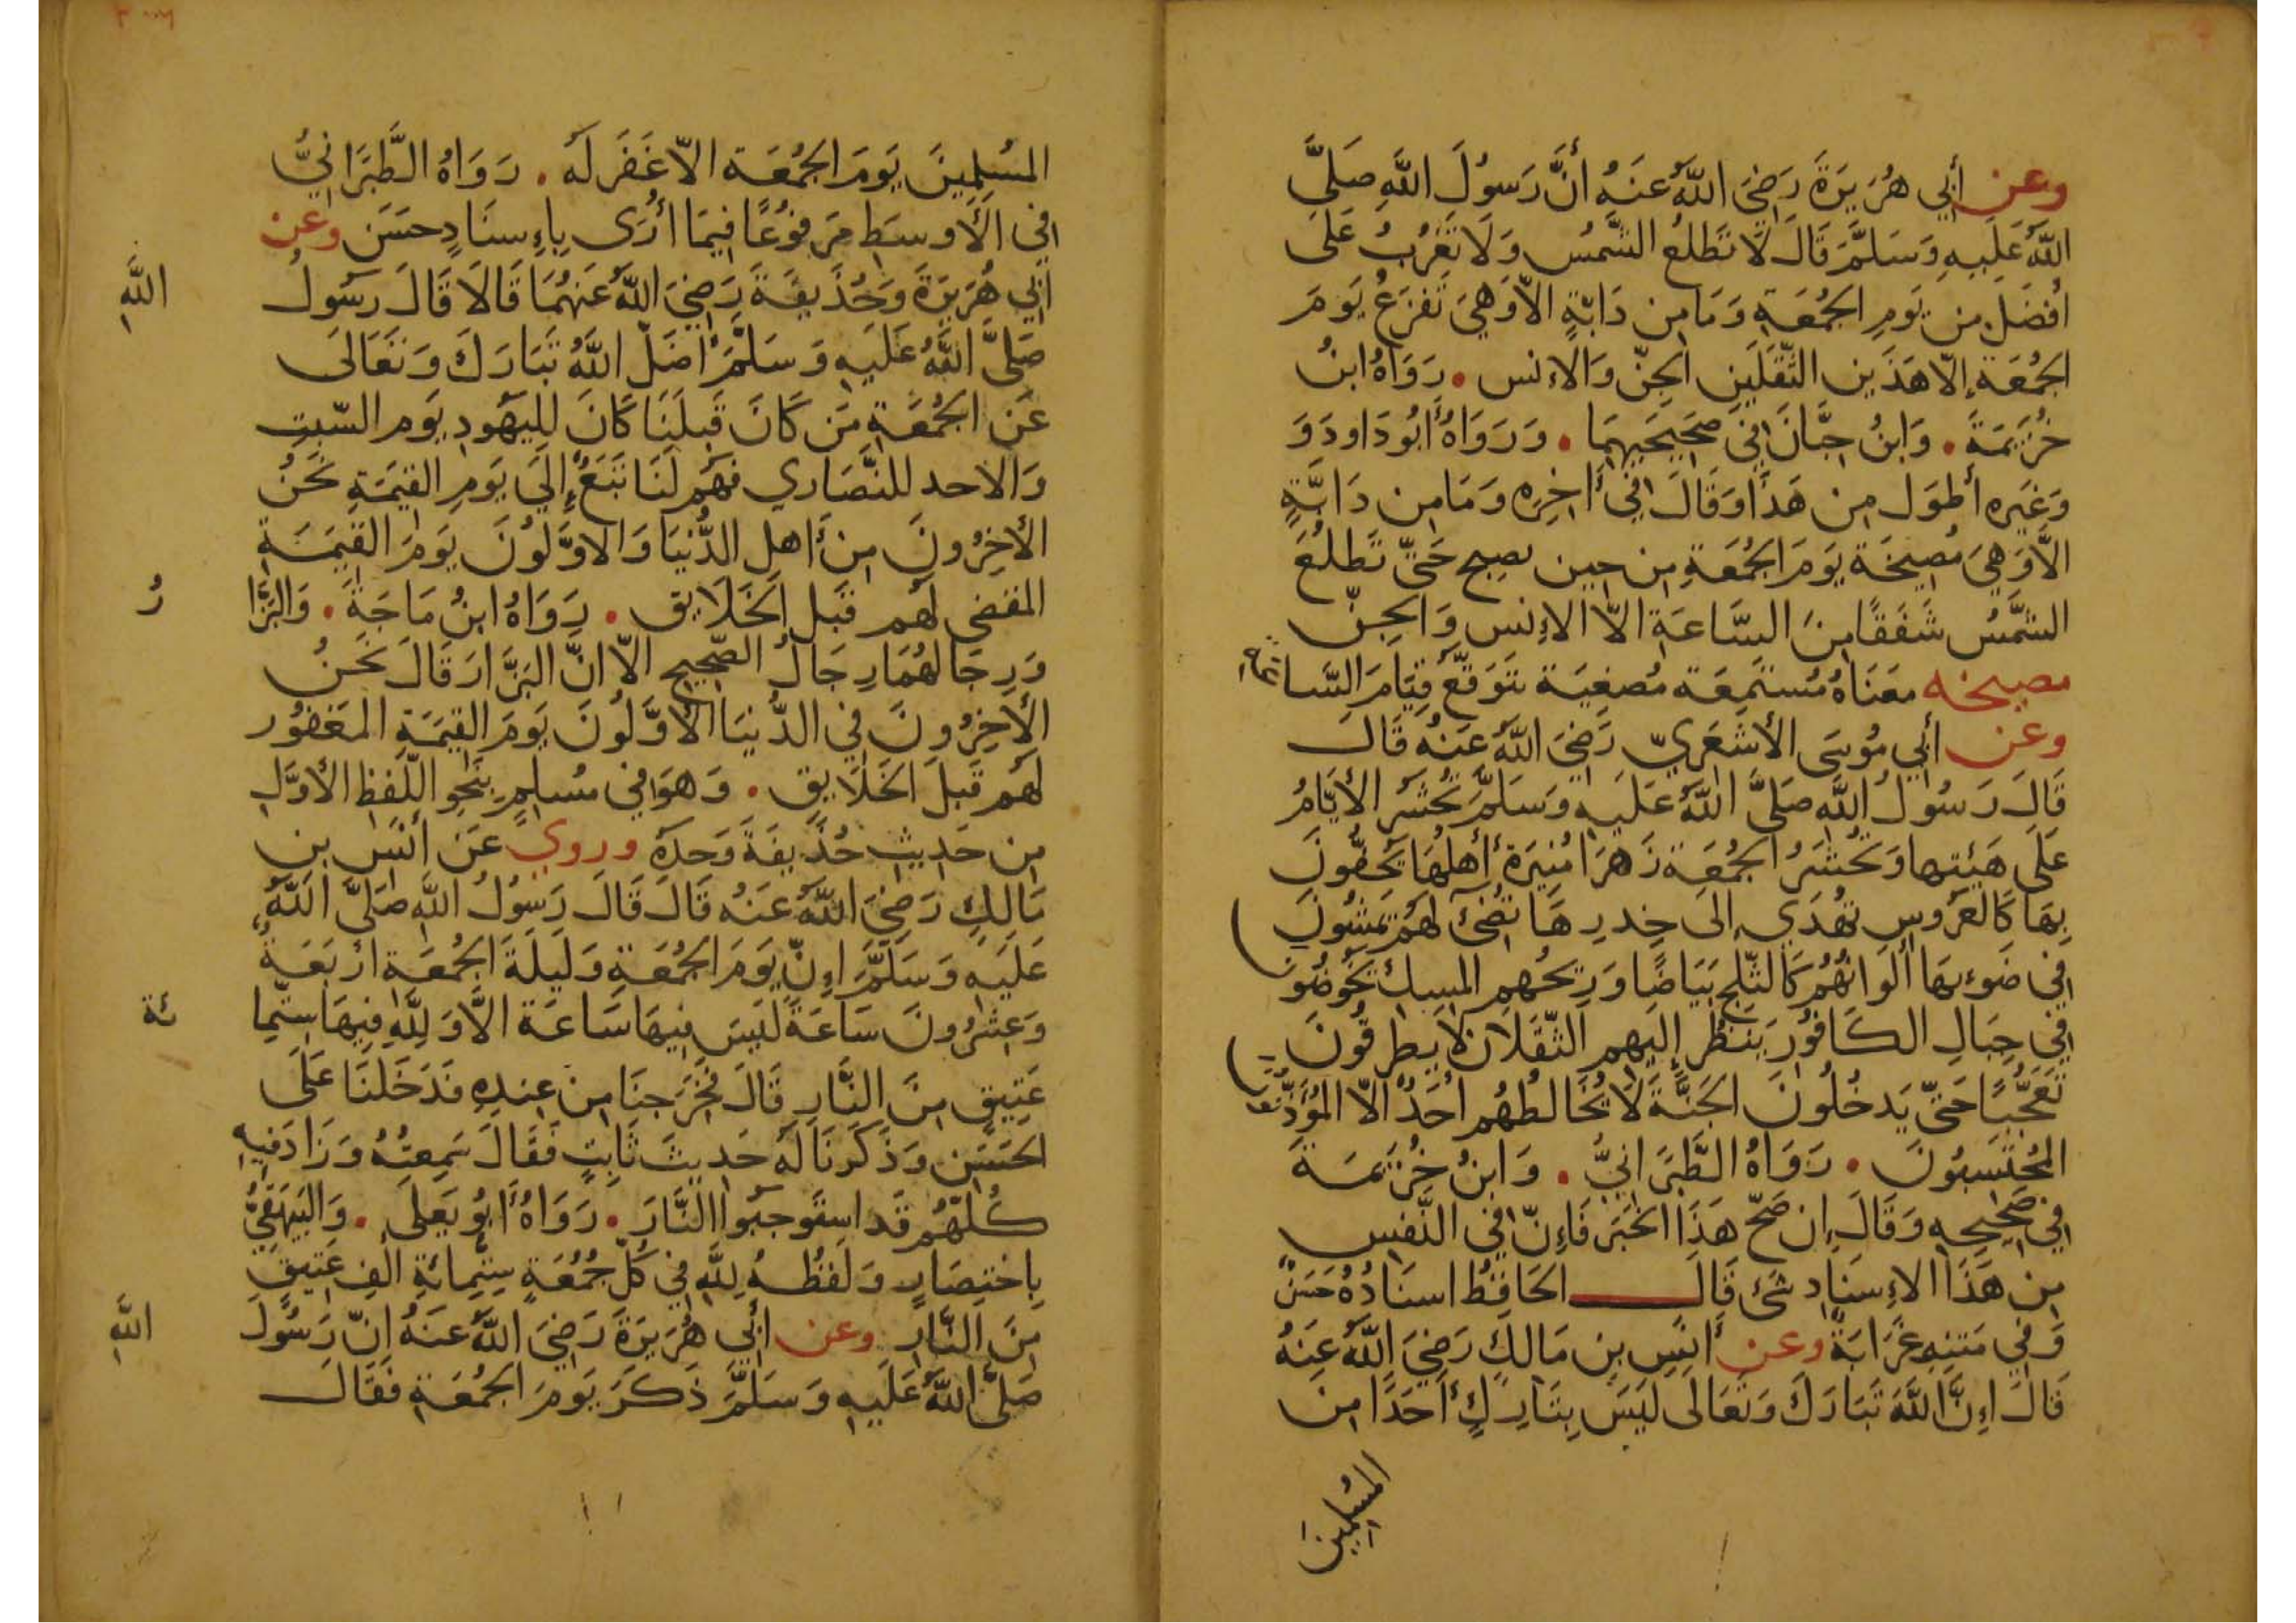 وعن أبي هُرَيرَةَ رَضِيَ اللَّهُ عَنهُ أنَّ رَسُولَ اللَّهِ صَلَّى
اللَّهُ عَلَيهِ وَسَلَّمَ قَالَ لَا تَطلعُ الشَّمسُ وَلَا تَغرُبُ عَلَى
أفضَلَ مِن يَومِ الجُمُعَةِ وَمَا مِن دَابَّةٍ الَّا وَهِيَ تَفزَعُ يَومَ
الجُمُعَة إلَّا هَذَين الثَّقَلَينِ الجِنّ وَالانس . رَوَاهُ ابنُ
خُزَيمَةَ . وَابنُ حِبَّانَ فِي صَحِيحَيهِمَا . وَرَوَاهُ أبُو دَاودَ وَ
وَغَيره أطوَل مِن هَذَا وَقَالَ فِي أَاخِرِه وَمَا مِن دَابَّةٍ
الَّا وَهِيَ مُصِيخَة يَومَ الجُمُعَةِ مِن حِين تصبح حَتّى تَطلُعَ
الشَّمسُ شَفَقًا مِنَ السَّاعَةِ الَّا الإنس وَالجِنّ
مصيخه معَنَاهُ مُستَمِعَة مُصغِيَة تَتَوَقَّع قِيَامَ السَّاعة
وعن أبي مُوسَى الأشعَرِيّ رَضِيَ اللَّهُ عَنهُ قَالَ
قَالَ رَسُولُ اللَّه صَلَّى اللَّهُ عَلَيهِ وَسَلَّمَ تُحشَر الأيَّامُ
عَلَى هَيئتِها وَتُحشَرُ الجُمُعَة زَهرَا مُنِيرَة أهلُهَا يَحُفّونَ
بِهَا كَالعَرُوسِ تُهدَي إلَى خِدرِهَا تُضِئ لَهُم يَمشُونَ
فِي ضَوءِهَا ألوَانُهُم كَالثَّلجِ بَيَاضًا وَرِيحُهِم المِسك يَخُوضُونَ
فِي جِبَالِ الكَافُورِ يَنظُر إلَيهِم الثّقَلَان لَا يطرقُونَ
تَعَجُّبًا حَتّى يَدخُلُونَ الجَنَّةَ لَا يُخَالطُهُم أحَدٌ الَّا المُؤَذِّنُونَ
المُحتَسِبُونَ . رَوَاهُ الطَّبَرَانِيُّ . وَابنُ خُزَيمَةَ
فِي صَحِيحِهِ وَقَالَ إن صَحّ هَذَا الخَبَر فَإنّ فِي النَّفسِ
مِن هَذَا الإسنَادِ شَئ قَالَ الحَافِظُ اسنَادُهُ حَسَنٌ
وَفِي مَتنِهِ غَرَابَةٌ وعن أنَسِ بنِ مَالكٍ رَضِيَ اللَّهُ عَنهُ
قَالَ إنَّ اللَّهَ تَبَارَكَ وَتَعَالَى لَيسَ بِتَارِكٍ أحَدًا مِن
المُسلِمِينَ
المُسلِمِينَ يَومَ الجُمُعَة الَّا غَفَرَ لَه . رَوَاهُ الطَّبَرَانِيُّ
فِي الأوسَطِ مَرفُوعًا فِيمَا أرَى بِإسنَادٍ حَسَن وعن
أبي هُرَيرَةَ وَحُذَيفَةَ رَضِيَ اللَّهُ عَنهُمَا قَالَا قَالَ رَسُولُ اللَّهِ
صَلَّى اللَّهُ عَلَيهِ وَسَلَّمَ أضَلّ اللَّهُ تَبَارَكَ وَتَعَالَى
عَنِ الجُمُعَةِ مَن كَانَ قَبلَنَا كَانَ لِليَهُودِ يَوم السّبتِ
وَالاحد للنَّصَاري فهُم لَنَا تَبَعٌ إلَى يَومِ القِيَمَةِ نَحنُ
الأخِرُونَ مِن أهلِ الدُّنيَا وَالاوَّلُونَ يَومَ القِيَمَةِ
المقضي لَهُم قَبلَ الخَلَايق . رَوَاهُ ابنُ مَاجَةَ . وَالبَزَّارُ
وَرِجَالهُمَا رِجَالُ الصَّحِيحِ الّا أنَّ البَزَّارَ قَالَ نَحنُ
الأخِرُونَ فِي الدُّنيَا الأوَّلُونَ يَومَ القِيَمَةِ المَغفُور
لَهُم قَبلَ الخَلَايِقِ . وَهوَ فِي مُسلِمٍ بِنَحوِ اللَّفظِ الأوَّلِ
مِن حَدِيثِ حُذَيفَةَ وَحدَهُ وروي عَن أنَسِ بنِ
مَالِكٍ رَضِيَ اللَّهُ عَنهُ قَالَ قَالَ رَسُولُ اللَّهِ صَلَّى اللَّهُ
عَلَيهِ وَسَلَّمَ إنّ يَومَ الجُمُعَةِ وَلَيلَةَ الجُمُعَةِ أربَعَةٌ
وَعِشرُونَ سَاعَةً لَيسَ فِيهَا سَاعَة الَّا وَلِلَّهِ فِيهَا ستّمائة
عَتِيقٍ مِنَ النَّارِ قَالَ فَخَرَجنَا مِن عِندِهِ فَدَخَلنَا عَلَى
الحَسَنِ وَذَكَرنَا لَهُ حَدِيثَ ثَابِتٍ فَقَالَ سَمِعتُهُ وَزَادَ فِيهِ
كُلّهُم قَد استَوجَبُوا النَّارَ . رَوَاهُ أبُو يَعلَى . وَالبَيهَقِيُّ
بِاختِصَارٍ وَلَفظُهُ لِلَّهِ فِي كُلّ جُمُعَةٍ سِتّمِائَةِ ألفِ عَتِيقٍ
مِنَ النَّارِ وعن أبي هُرَيرَةَ رَضِيَ اللَّهُ عَنهُ إنّ رَسُولَ اللَّهِ
صَلَّى اللَّهُ عَلَيهِ وَسَلَّمَ ذَكَرَ يَومَ الجُمُعَةِ فَقَالَ